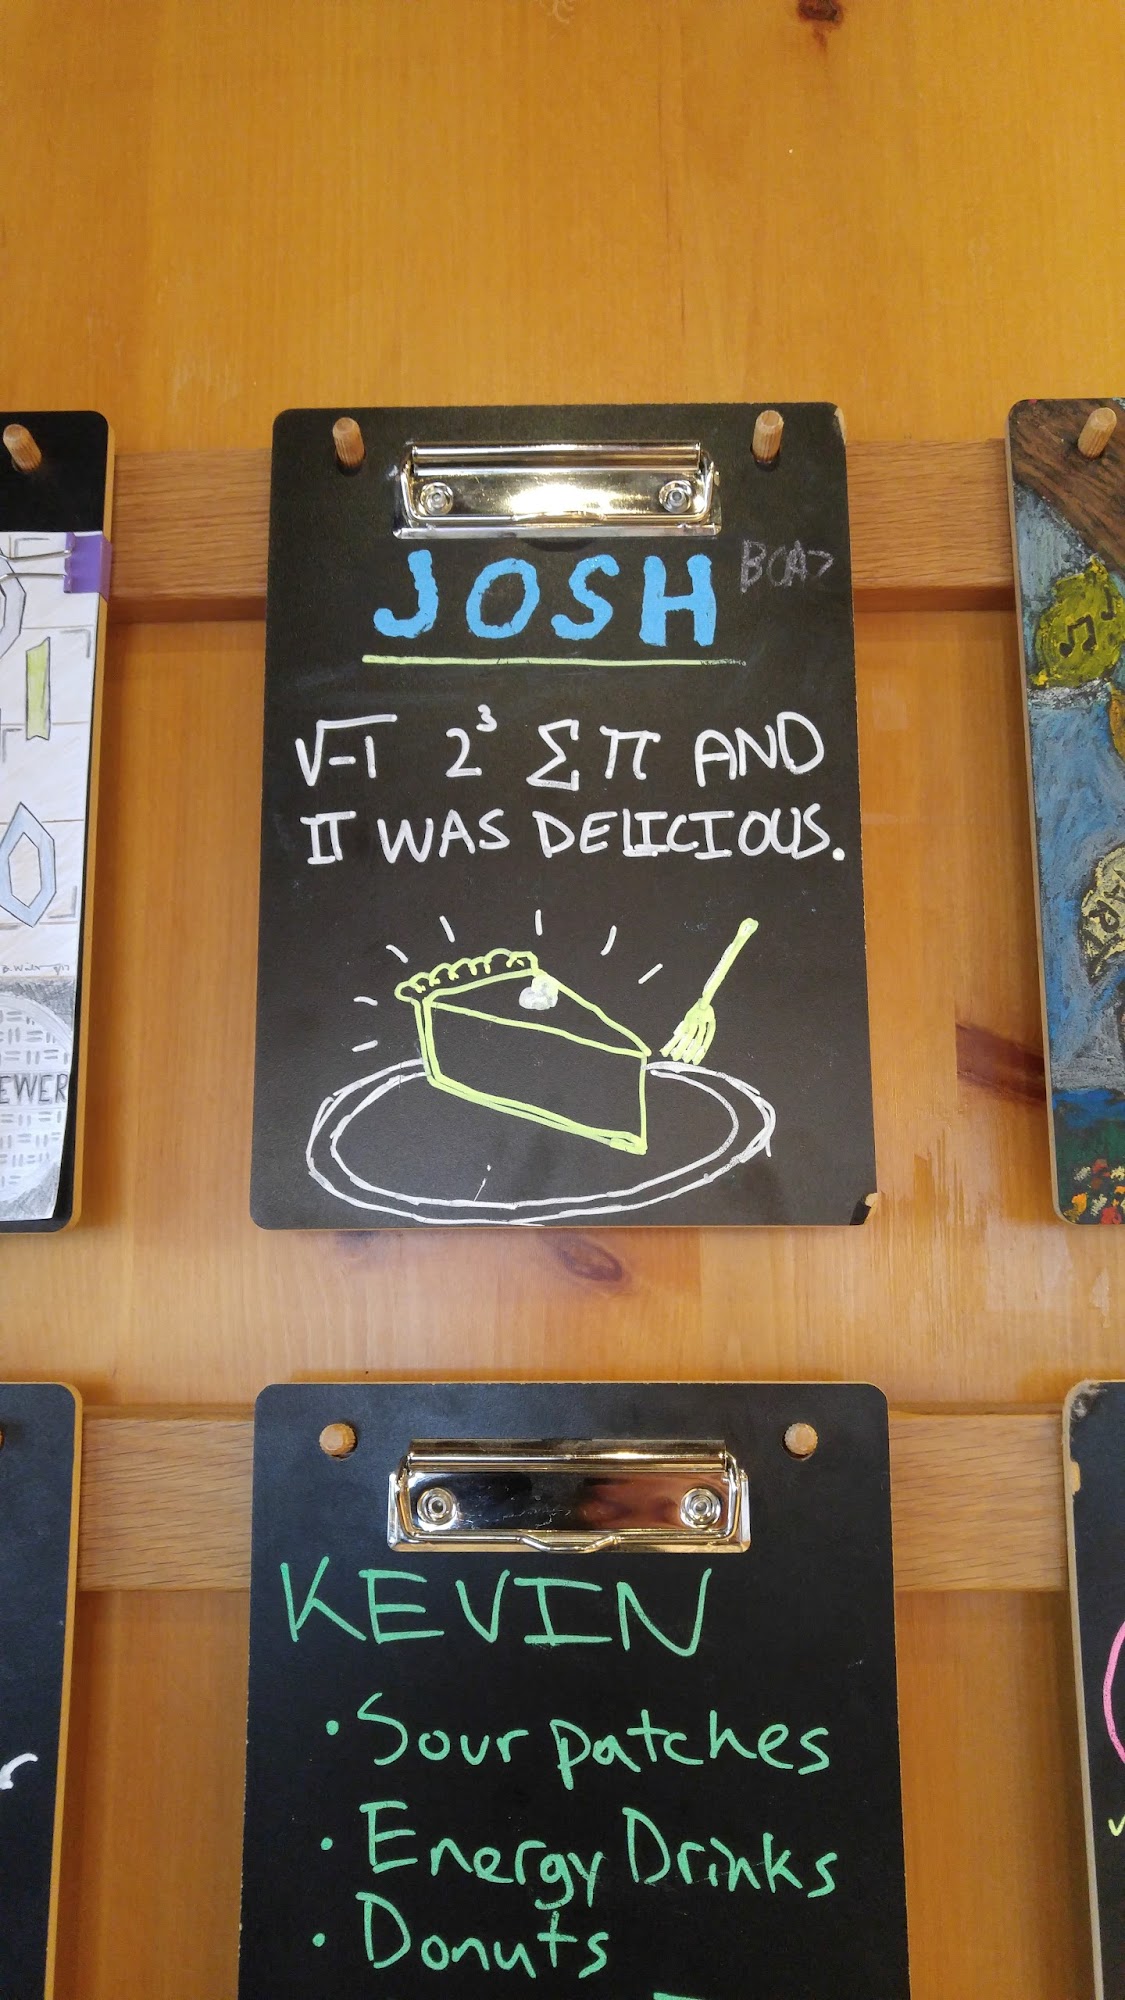 JOSH
√-1 2³ Σ π AND
IT WAS DELICIOUS.
EWER
KEVIN
• Sour patches
• Energy Drinks
• Donuts